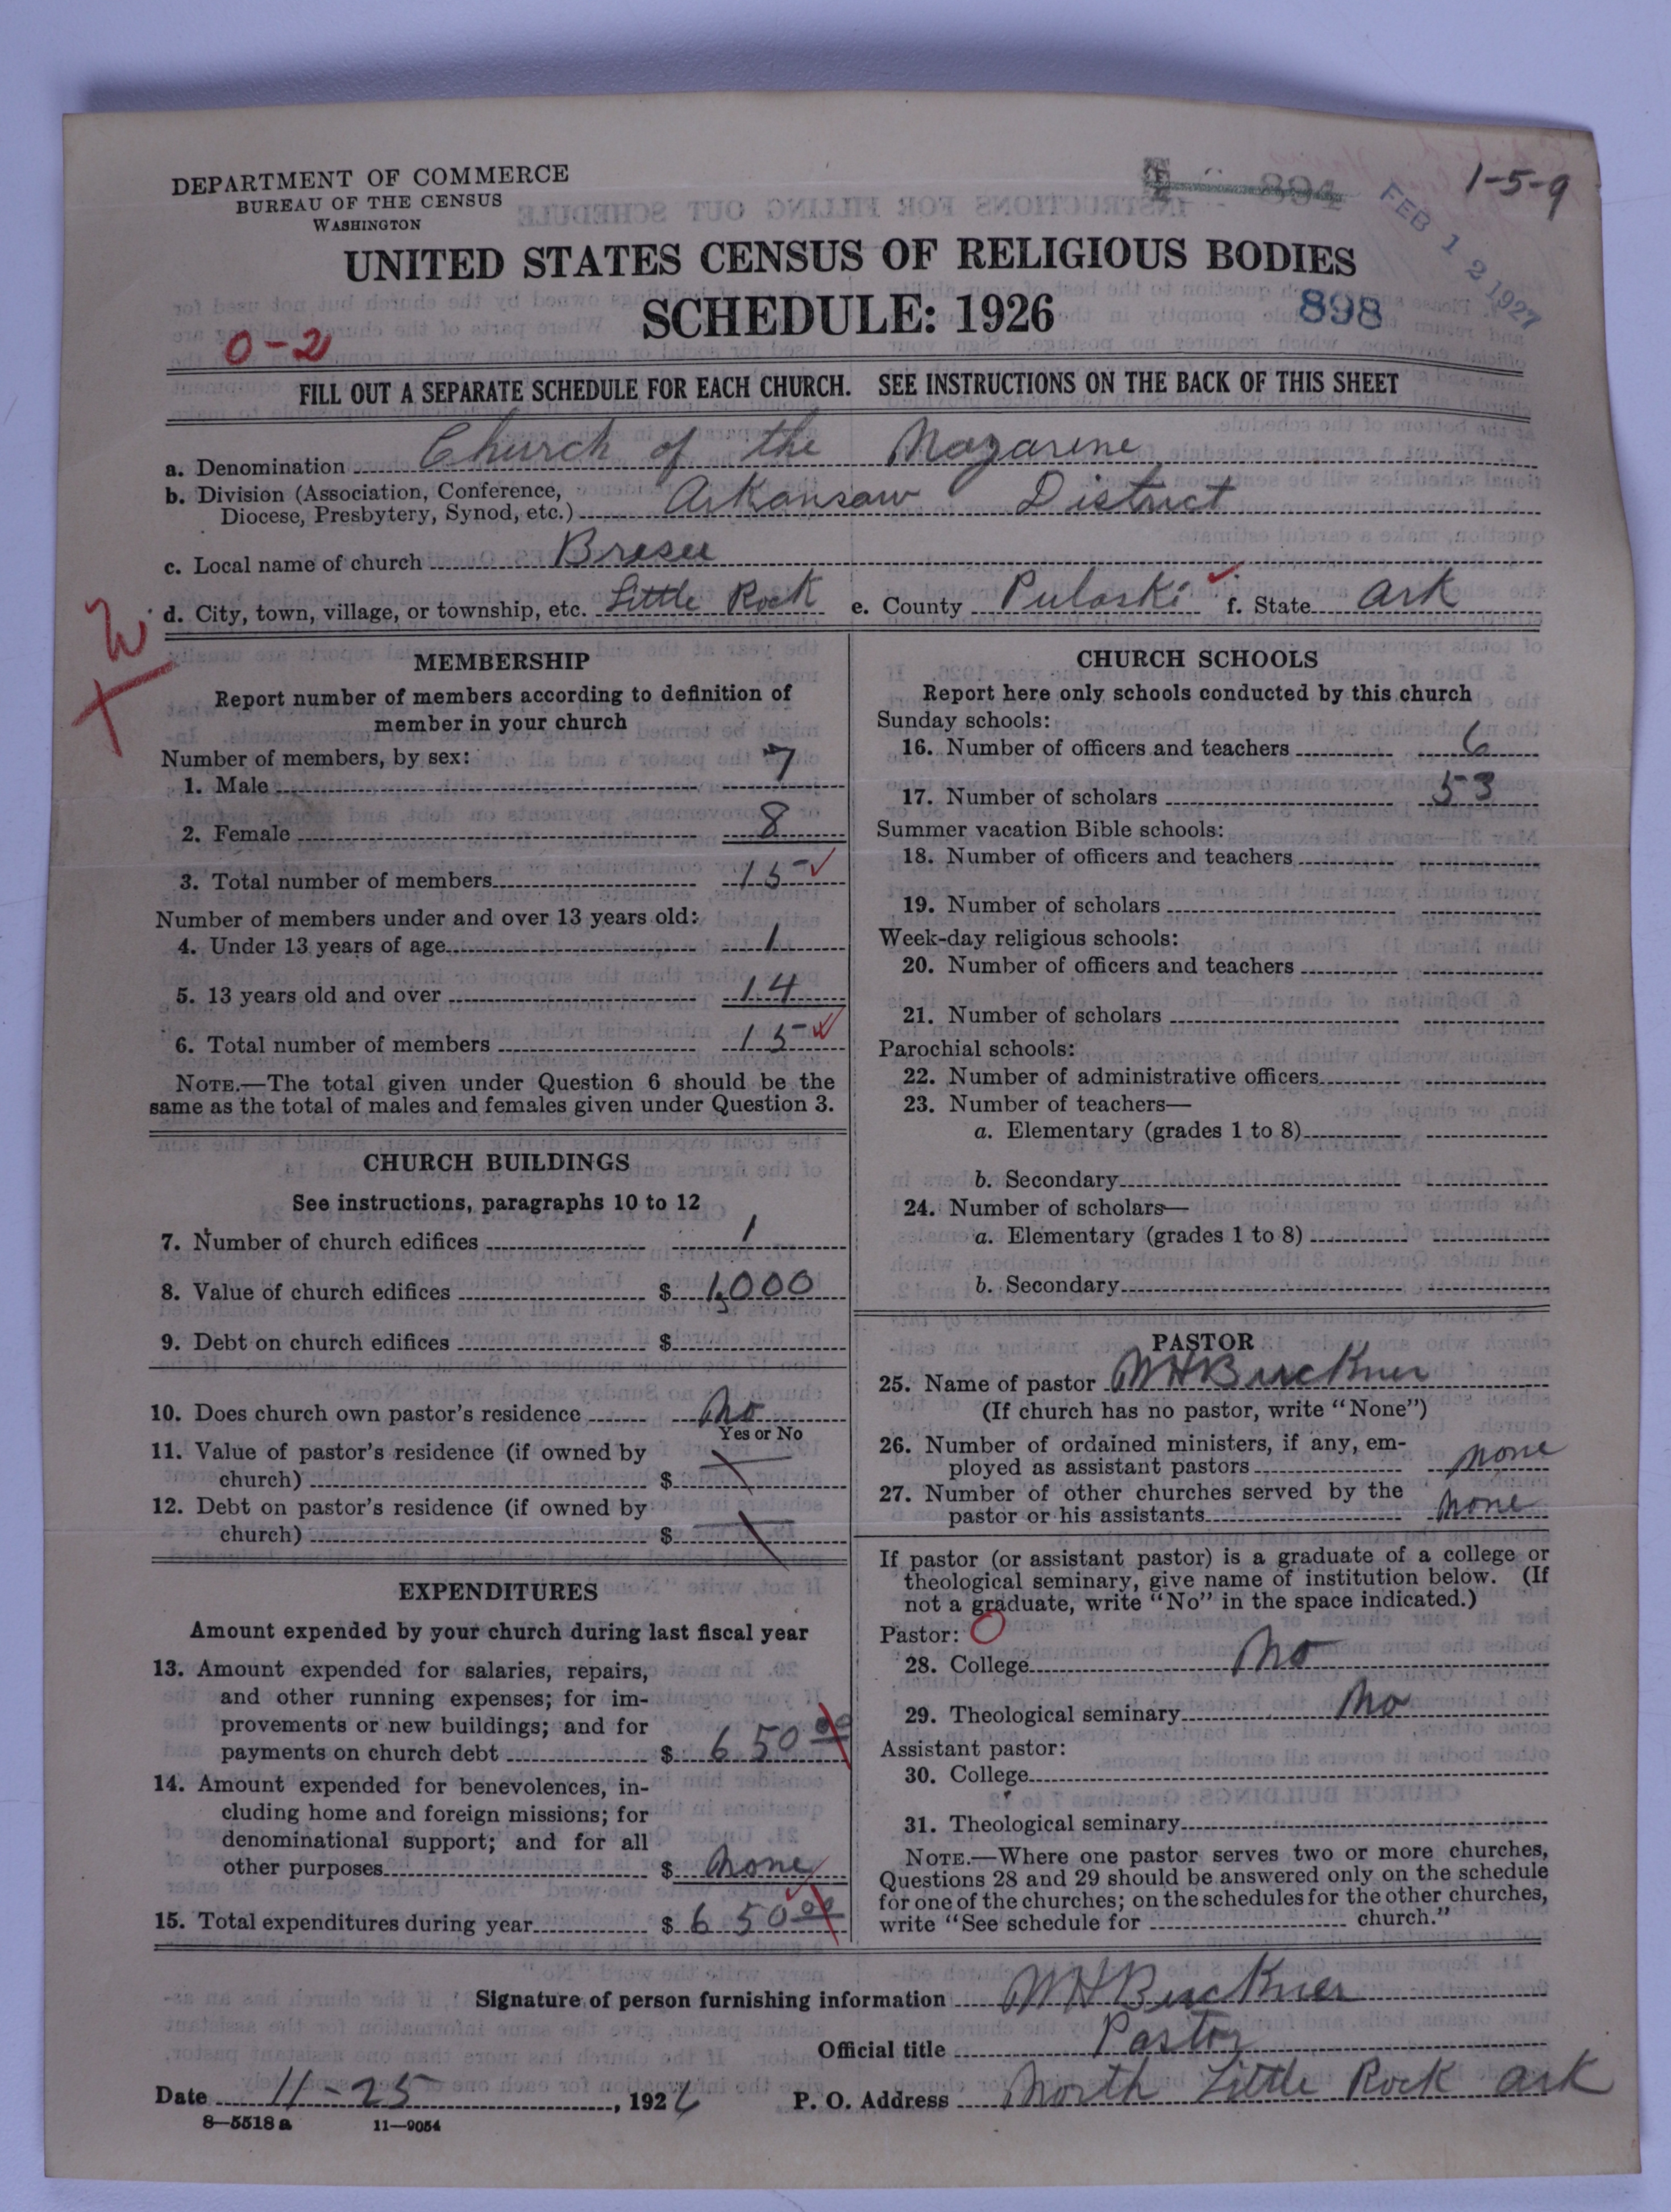 DEPARTMENT OF COMMERCE
BUREAU OF THE CENSUS
WASHINGTON
894
1-5-9
FEB 12 1927
UNITED STATES CENSUS OF RELIGIOUS BODIES
SCHEDULE: 1926
898
0-2
FILL OUT A SEPARATE SCHEDULE FOR EACH CHURCH. SEE INSTRUCTIONS ON THE BACK OF THIS SHEET
a. Denomination Church of the Nazarene
b. Division (Association, Conference,
Diocese, Presbytery, Synod, etc.) Arkansaw District
c. Local name of church Bresee
d. City, town, village, or township, etc. Little Rock e. County Pulaski f. State Ark
MEMBERSHIP
Report number of members according to definition of
member in your church
Number of members, by sex:
1. Male 7
2. Female 8
3. Total number of members 15
Number of members under and over 13 years old:
4. Under 13 years of age 1
5. 13 years old and over 14
6. Total number of members 15
NOTE.—The total given under Question 6 should be the
same as the total of males and females given under Question 3.
CHURCH BUILDINGS
See instructions, paragraphs 10 to 12
7. Number of church edifices 1
8. Value of church edifices $ 1,000
9. Debt on church edifices $
10. Does church own pastor's residence No
Yes or No
11. Value of pastor's residence (if owned by
church) $
12. Debt on pastor's residence (if owned by
church) $
EXPENDITURES
Amount expended by your church during last fiscal year
13. Amount expended for salaries, repairs,
and other running expenses; for im-
provements or new buildings; and for
payments on church debt $ 650 00
14. Amount expended for benevolences, in-
cluding home and foreign missions; for
denominational support; and for all
other purposes $ none
15. Total expenditures during year $ 650 00
CHURCH SCHOOLS
Report here only schools conducted by this church
Sunday schools:
16. Number of officers and teachers 6
17. Number of scholars 53
Summer vacation Bible schools:
18. Number of officers and teachers
19. Number of scholars
Week-day religious schools:
20. Number of officers and teachers
21. Number of scholars
Parochial schools:
22. Number of administrative officers
23. Number of teachers—
a. Elementary (grades 1 to 8)
b. Secondary
24. Number of scholars—
a. Elementary (grades 1 to 8)
b. Secondary
PASTOR
25. Name of pastor WH Buckner
(If church has no pastor, write "None")
26. Number of ordained ministers, if any, em-
ployed as assistant pastors none
27. Number of other churches served by the
pastor or his assistants none
If pastor (or assistant pastor) is a graduate of a college or
theological seminary, give name of institution below. (If
not a graduate, write "No" in the space indicated.)
Pastor: O
28. College No
29. Theological seminary No
Assistant pastor:
30. College
31. Theological seminary
NOTE.—Where one pastor serves two or more churches,
Questions 28 and 29 should be answered only on the schedule
for one of the churches; on the schedules for the other churches,
write "See schedule for church."
Signature of person furnishing information WH Buckner
Official title Pastor
Date 11-25, 1926 P. O. Address North Little Rock Ark
8—5518 a 11—9054